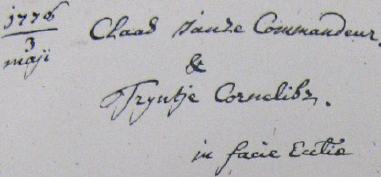 1776 Claas Janze Commandeur.
3
maji &
Tryntje Cornelibz.
in facie Ecclie